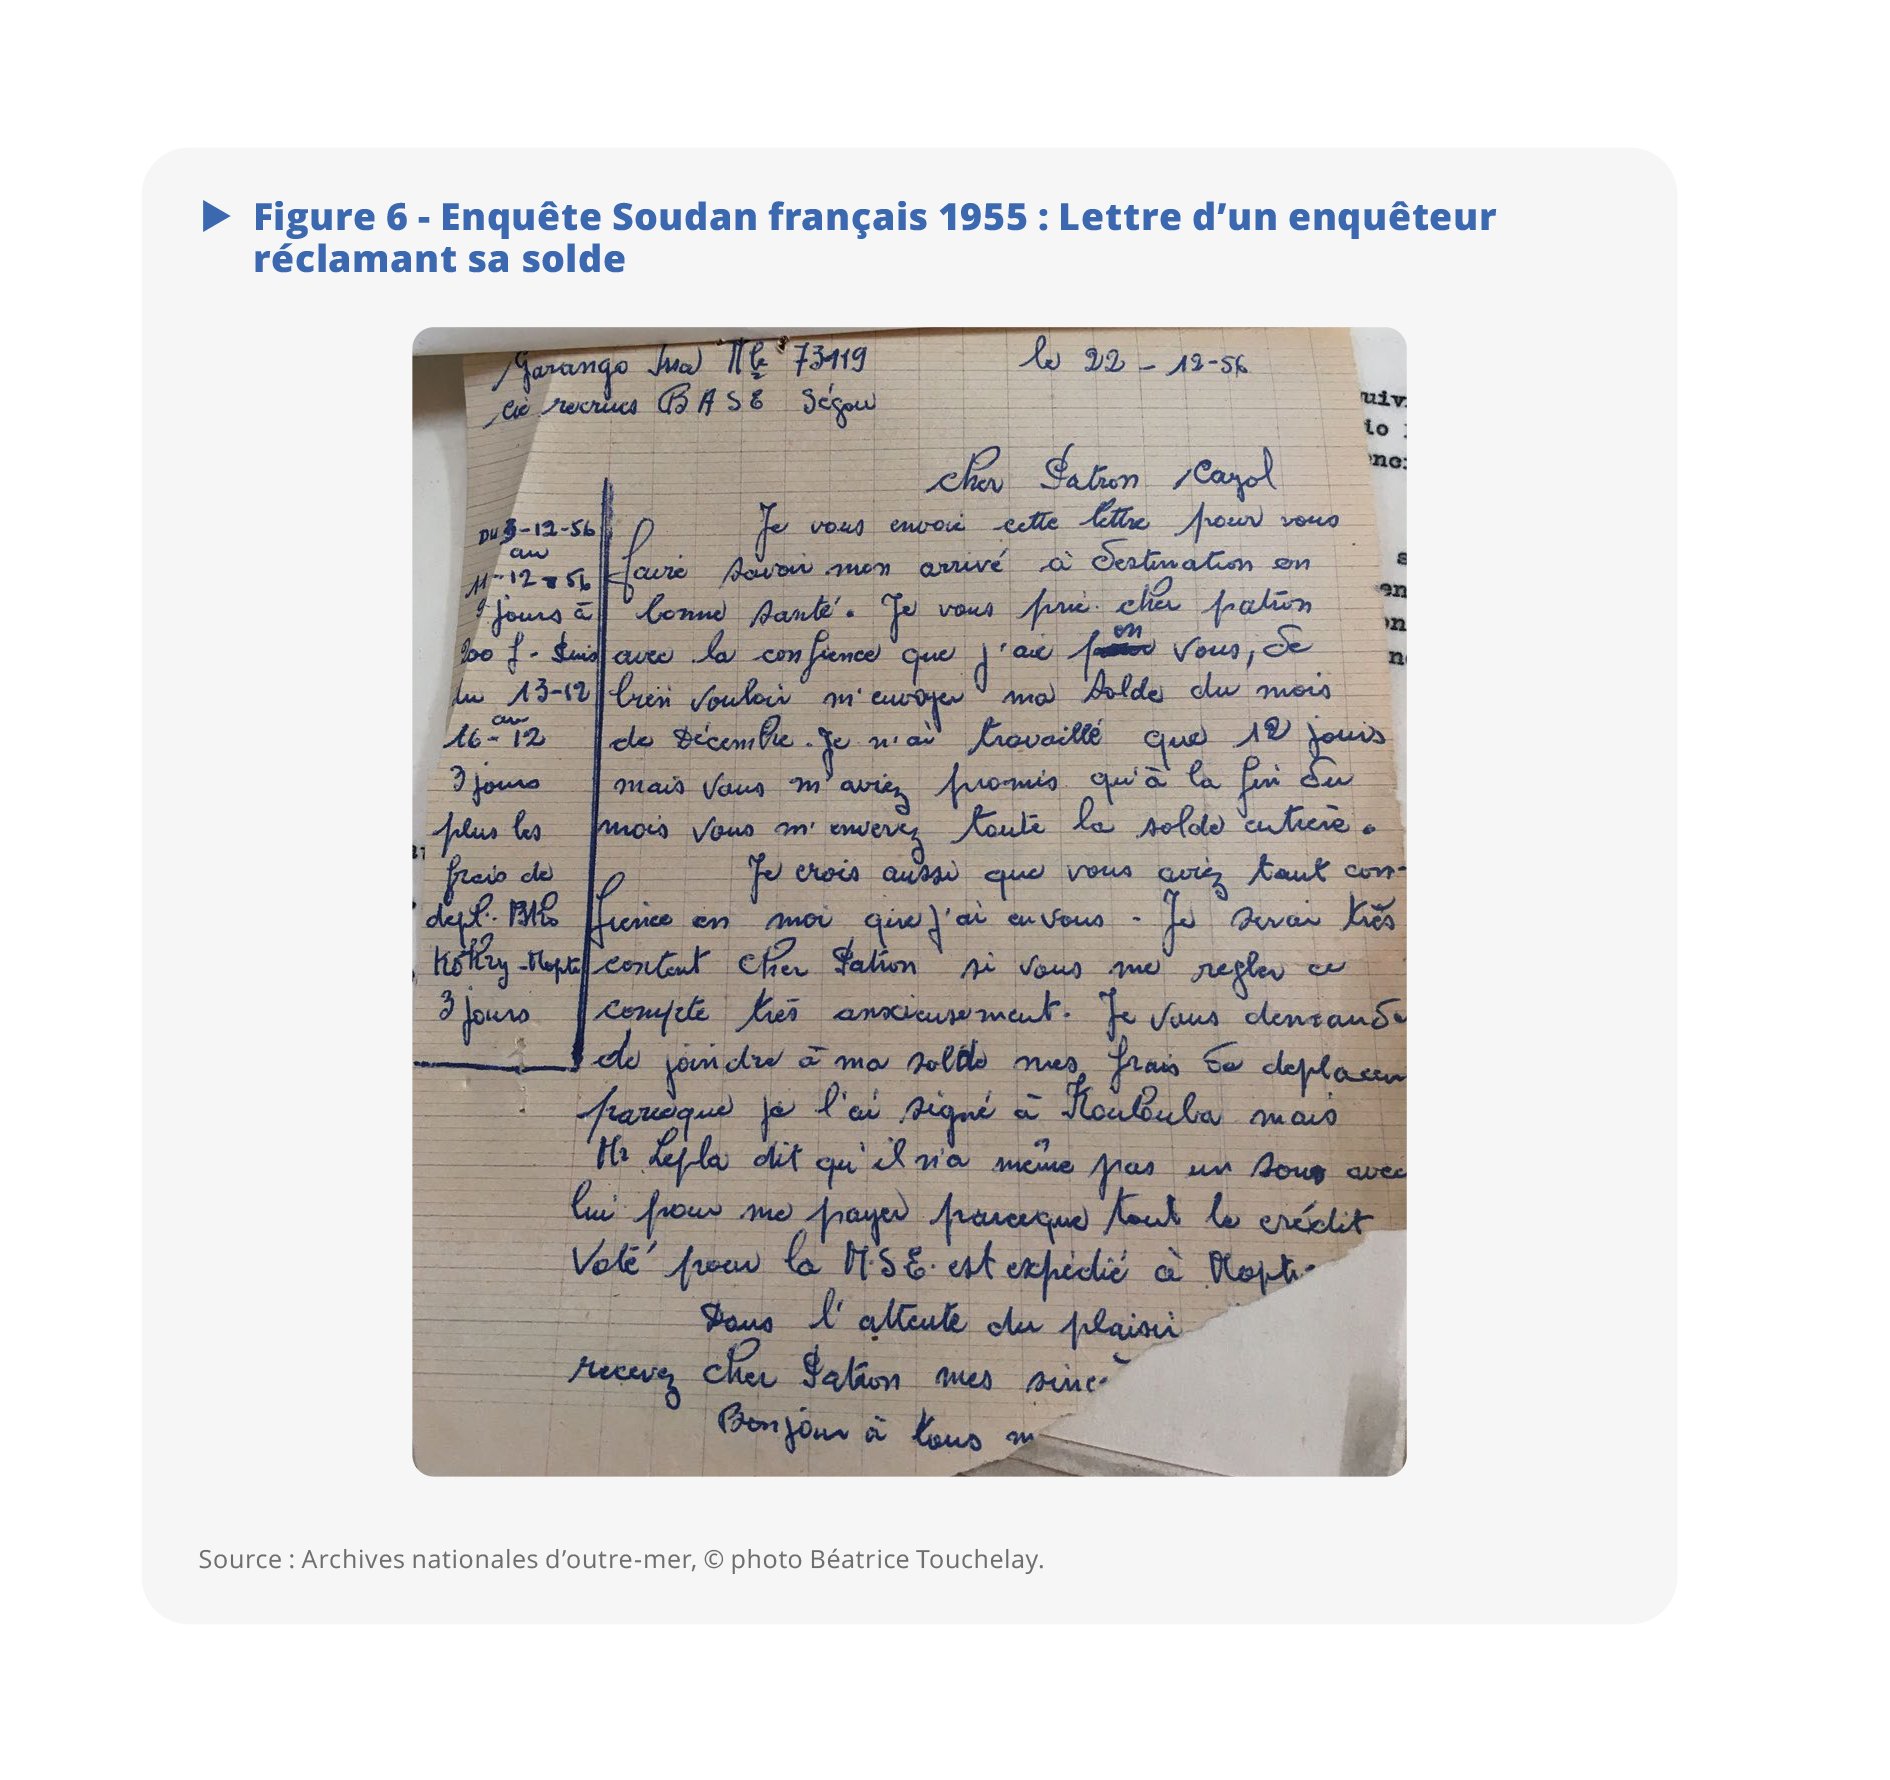 Figure 6 - Enquête Soudan français 1955 : Lettre d’un enquêteur
réclamant sa solde
Garango Issa Mle 73419
le 22 - 12-56
Cie recrues BASE Ségou
Cher Patron Cazol
Je vous envoie cette lettre pour vous
faire savoir mon arrivé à destination en
bonne santé. Je vous prie cher patron
avec la confience que j'ai en vous, de
bien vouloir m'envoyer ma solde du mois
de Décembre. Je n'ai travaillé que 12 jours
mais vous m'aviez promis qu'à la fin du
mois vous m'enverez toute la solde entière.
Je crois aussi que vous aviez tout con-
fience en moi que j'ai en vous. Je serai très
content Cher Patron si vous me regler ce
compte très anxieusement. Je vous demande
de joindre à ma solde mes frais de deplacem
parceque je l'ai signé à Koulouba mais
Mr Lepla dit qu'il n'a même pas un sous avec
lui pour me payer parceque tout le crédit
Voté pour la M.S.E. est expédié à Mopti
Dans l'attente du plaisir
recevez Cher Patron mes sincè
Bonjour à tous m
Du 3-12-56
au
11-12-56
9 jours à
200 f - Puis
du 13-12
au
16-12
3 jours
plus les
frais de
depl. Bko
Kokry-Mopti
3 jours
Source : Archives nationales d’outre-mer, © photo Béatrice Touchelay.